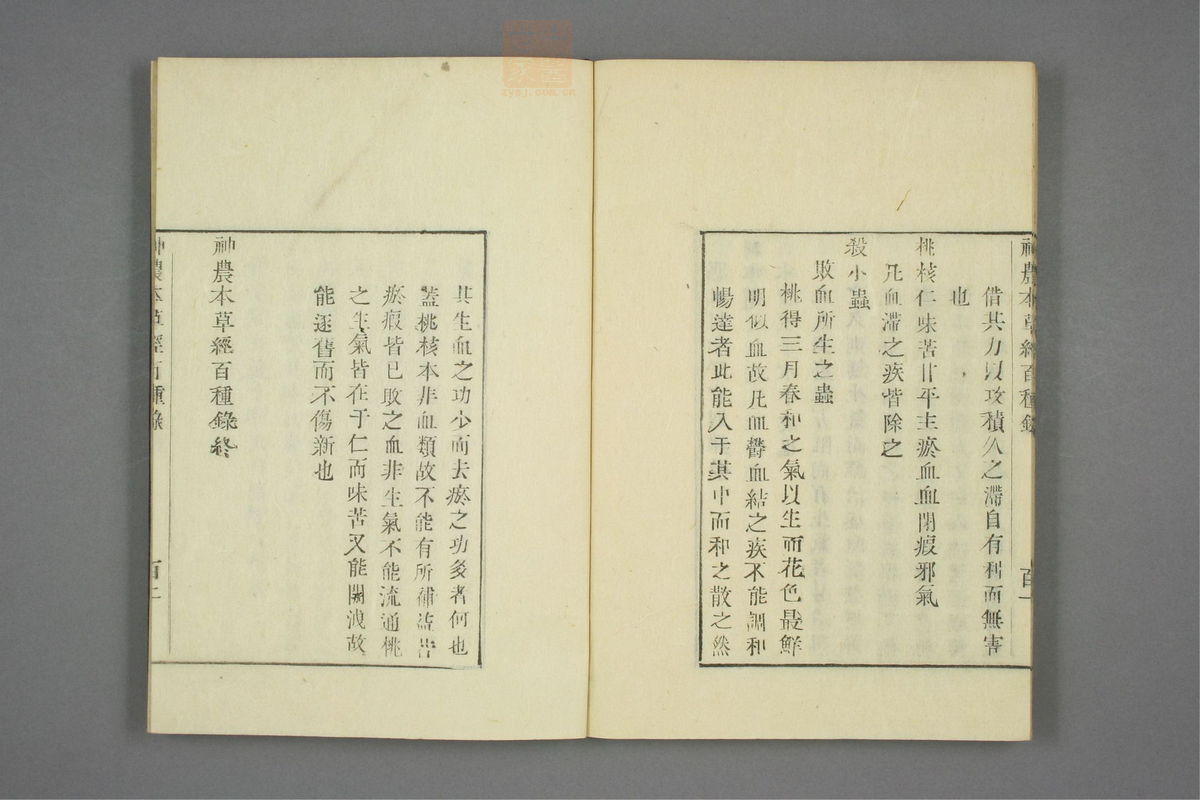 神農本草經百種錄
百一
借其力以攻積久之滯自有利而無害
也
桃核仁味苦甘平主瘀血血閉瘕邪氣
凡血滯之疾皆除之
殺小蟲
敗血所生之蟲
桃得三月春和之氣以生而花色最鮮
明似血故凡血鬱血結之疾不能調和
暢達者此能入于其中而和之散之然
其生血之功少而去瘀之功多者何也
蓋桃核本非血類故不能有所補益若
瘀瘕皆已敗之血非生氣不能流通桃
之生氣皆在于仁而味苦又能開洩故
能逐舊而不傷新也
神農本草經百種錄終
神農本草經百種錄
百二
zysj.com.cn